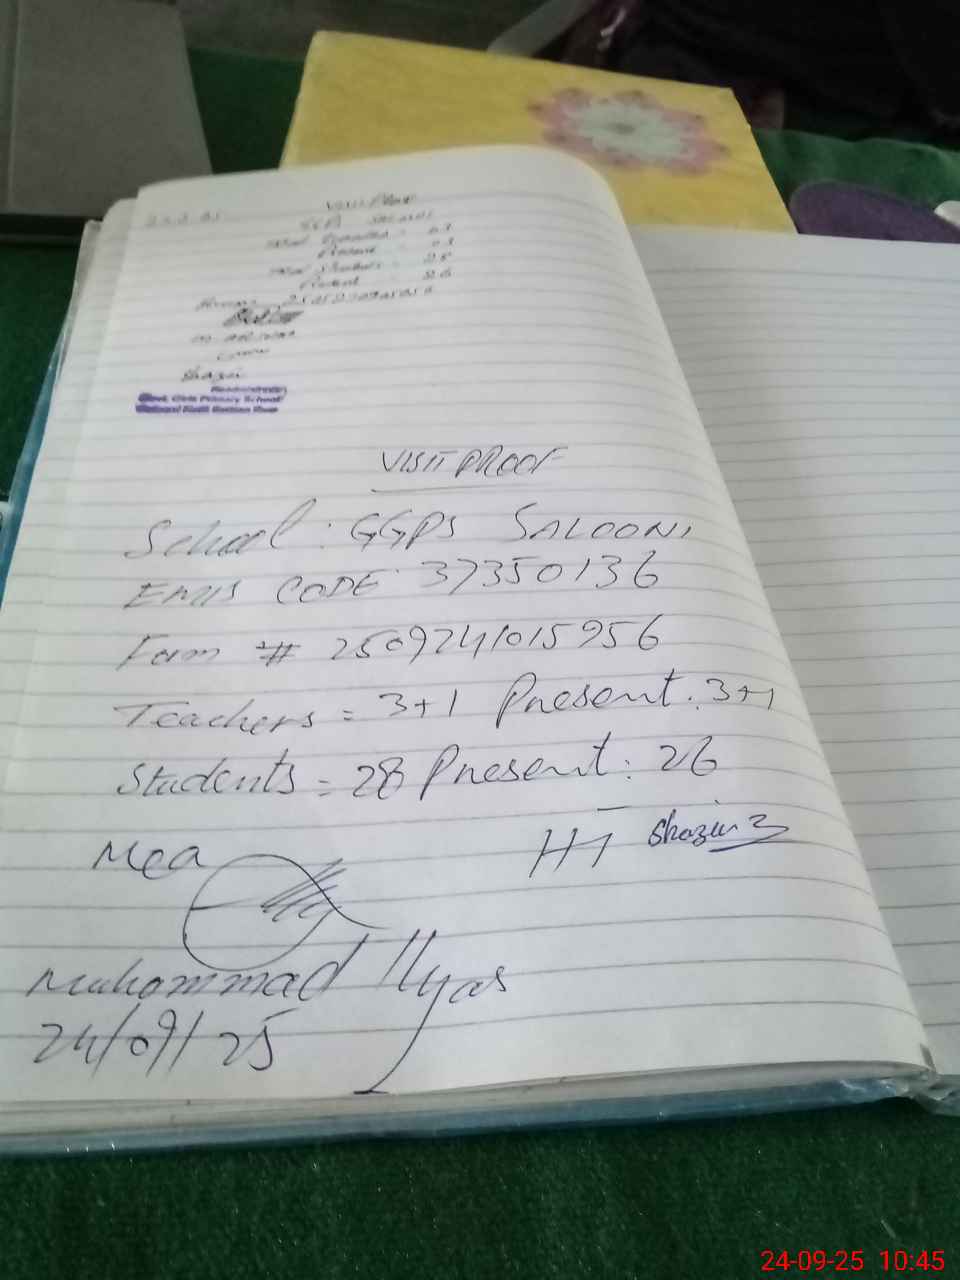 VISIT PROOF
Total Teachers : 03
Present : 03
Total Students : 28
Present 26
Shazia
Headmistress
Govt. Girls Primary School
VISIT PROOF
School : GGPS SALOONI
EMIS CODE 37350136
Form # 2509241015956
Teachers = 3+1 Present : 3+1
Students = 28 Present : 26
Mea
HT Shazia
Muhammad Ilyas
24/09/25
24-09-25 10:45